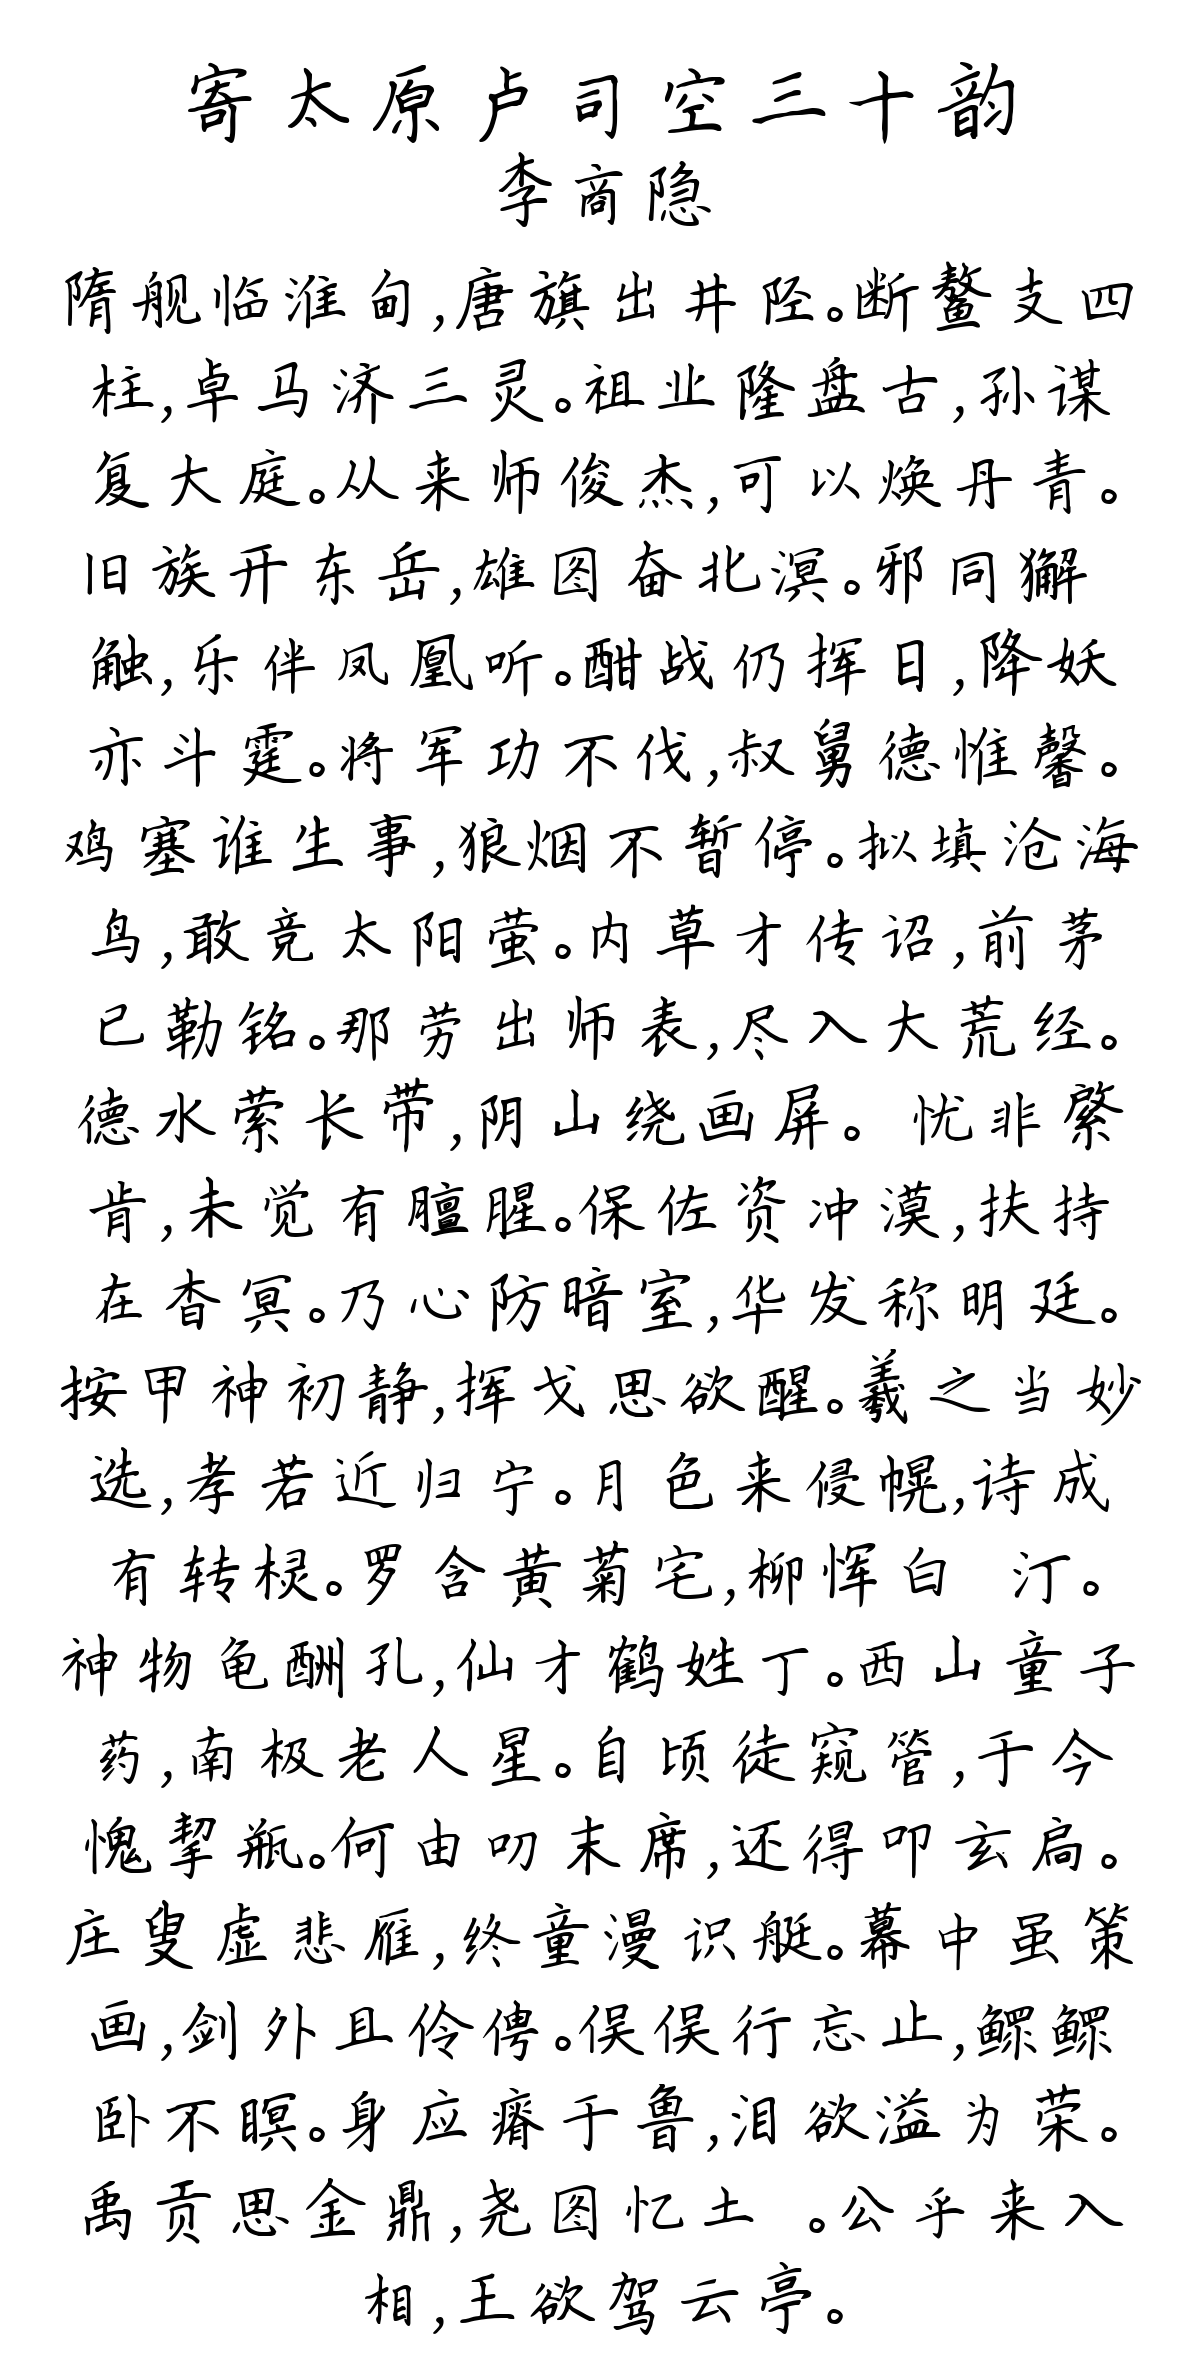 寄太原卢司空三十韵
李商隐
隋舰临淮甸,唐旗出井陉。断鳌支四
柱,卓马济三灵。祖业隆盘古,孙谋
复大庭。从来师俊杰,可以焕丹青。
旧族开东岳,雄图奋北溟。邪同獬
触,乐伴凤凰听。酣战仍挥日,降妖
亦斗霆。将军功不伐,叔舅德惟馨。
鸡塞谁生事,狼烟不暂停。拟填沧海
鸟,敢竞太阳萤。内草才传诏,前茅
已勒铭。那劳出师表,尽入大荒经。
德水萦长带,阴山绕画屏。 忧非綮
肯,未觉有膻腥。保佐资冲漠,扶持
在杳冥。乃心防暗室,华发称明廷。
按甲神初静,挥戈思欲醒。羲之当妙
选,孝若近归宁。月色来侵幌,诗成
有转棂。罗含黄菊宅,柳恽白 汀。
神物龟酬孔,仙才鹤姓丁。西山童子
药,南极老人星。自顷徒窥管,于今
愧挈瓶。何由叨末席,还得叩玄扃。
庄叟虚悲雁,终童漫识艇。幕中虽策
画,剑外且伶俜。俣俣行忘止,鳏鳏
卧不瞑。身应瘠于鲁,泪欲溢为荥。
禹贡思金鼎,尧图忆土 。公乎来入
相,王欲驾云亭。